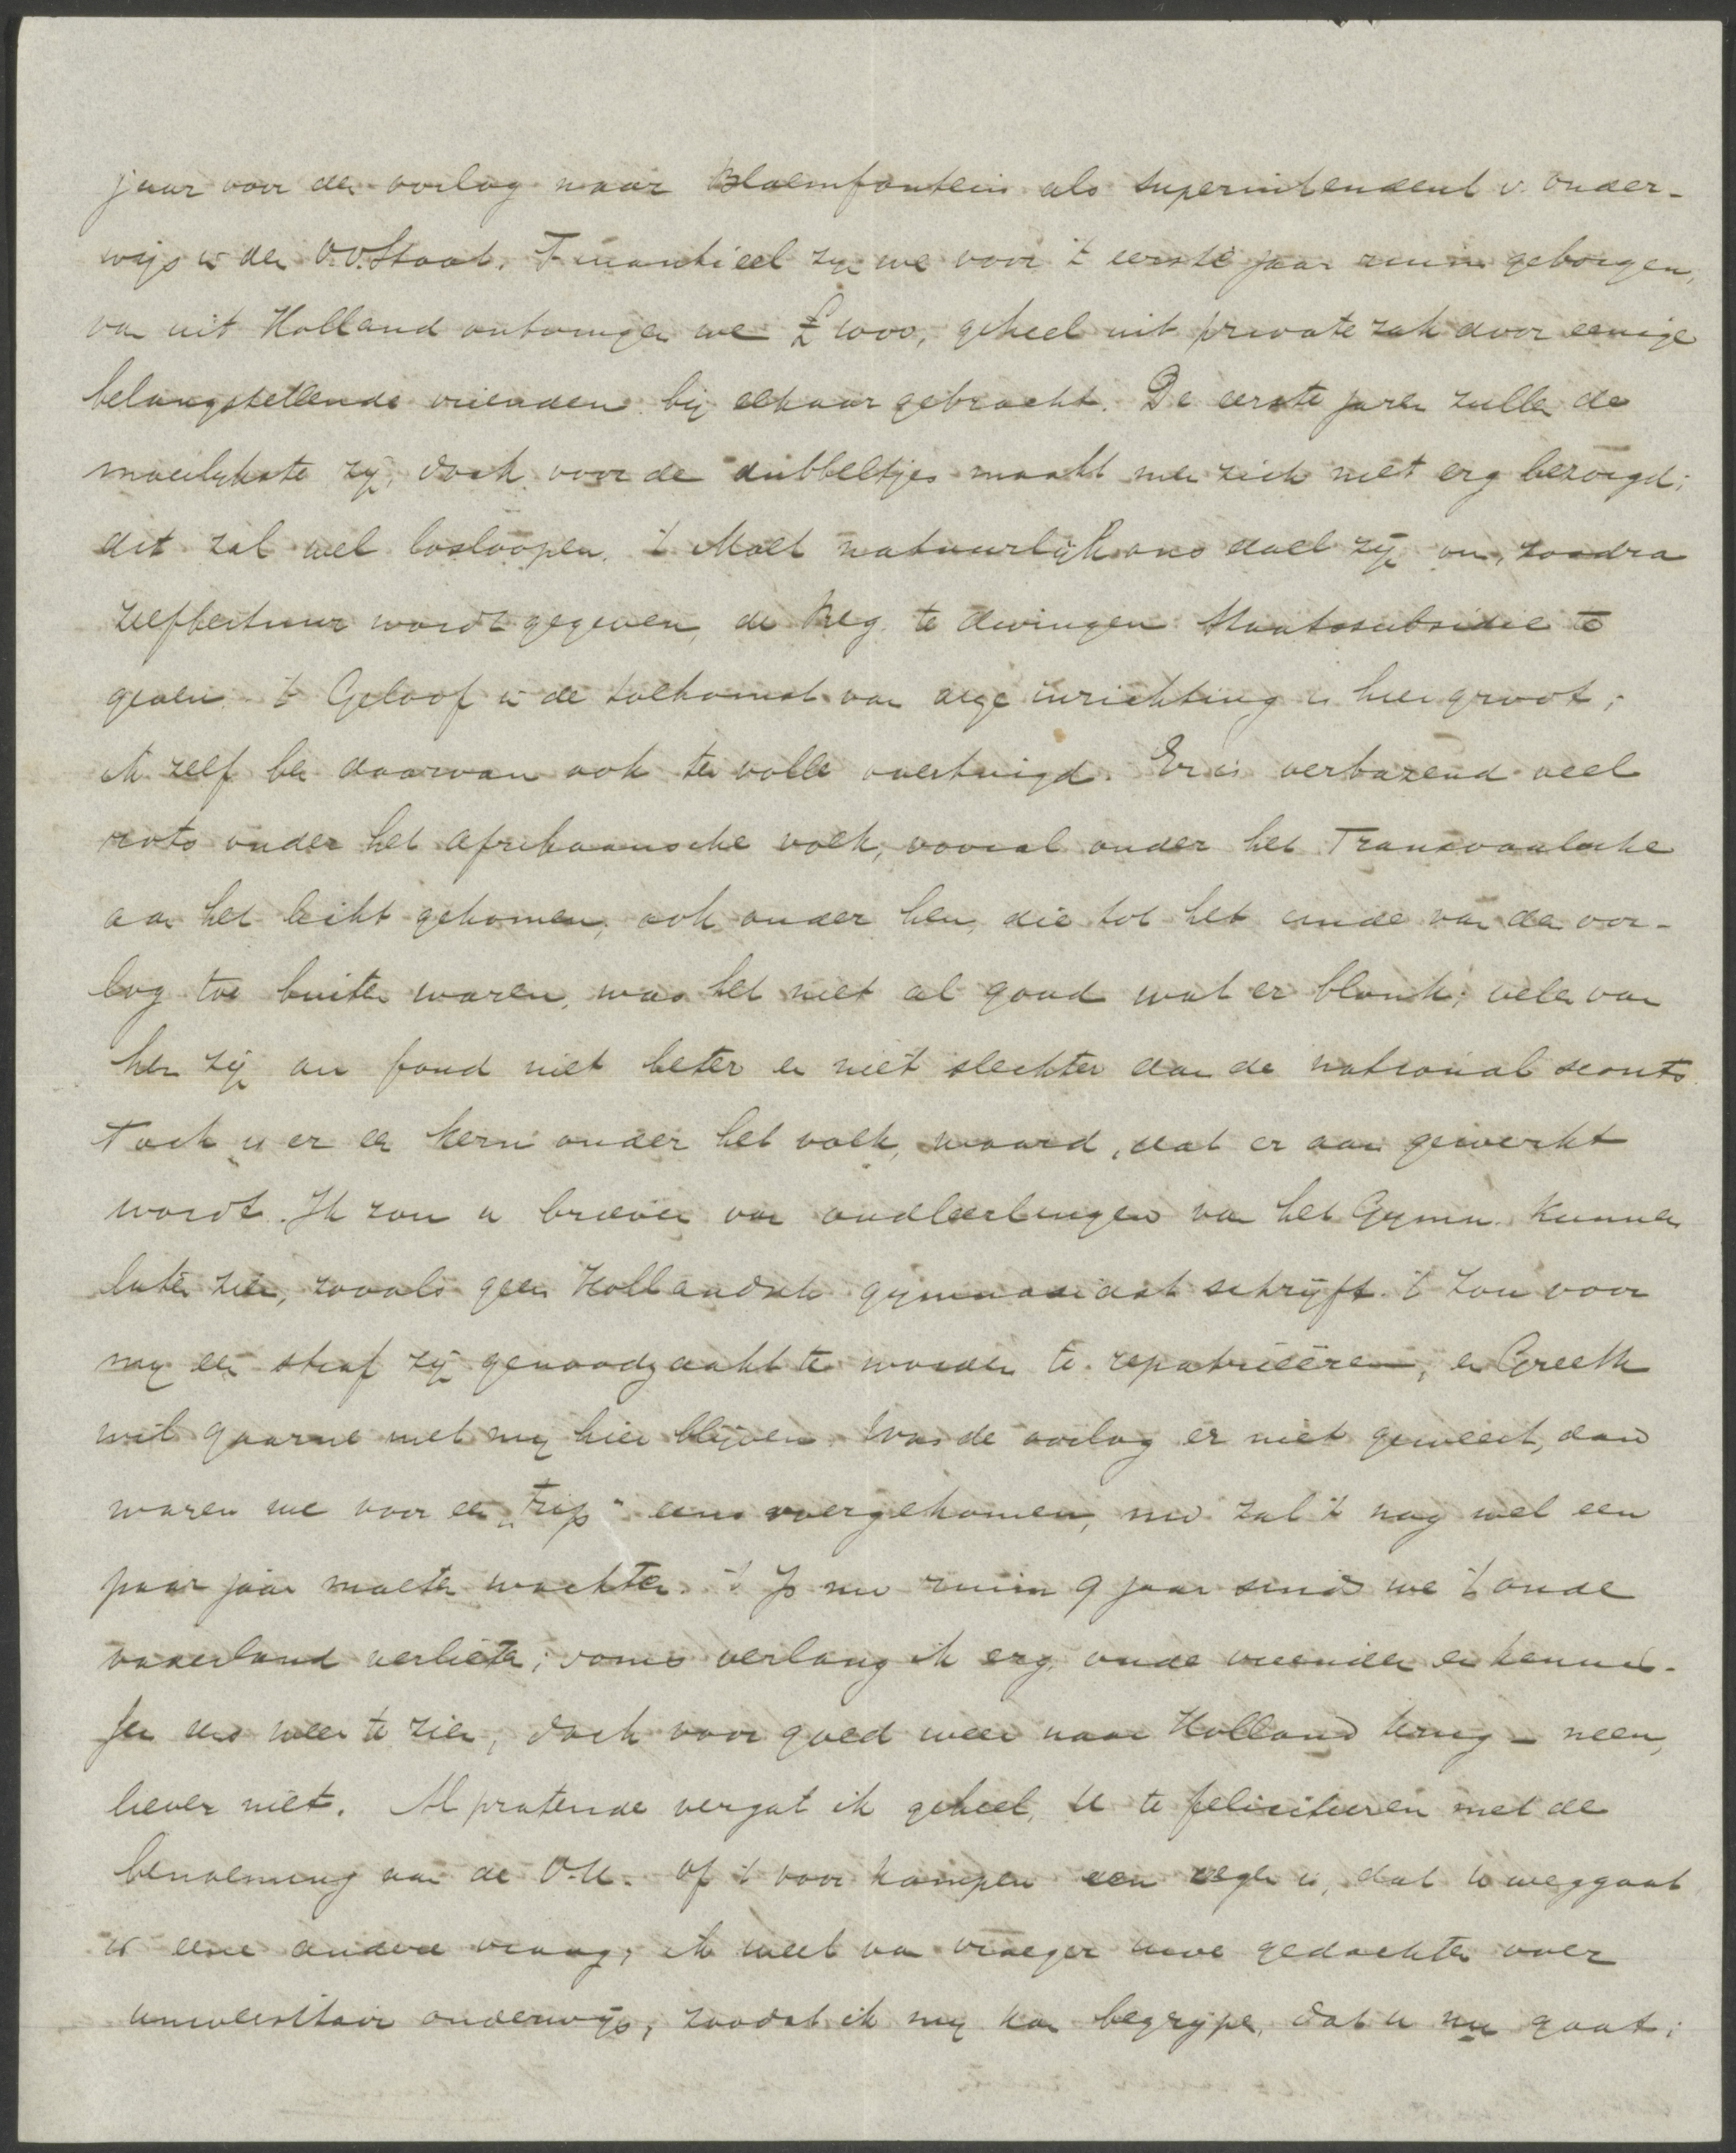 jaar voor den oorlog naar Bloemfontein als superintendent v. onder-
wijs in den O.V.Staat. Finantieel zijn we voor 't eerste jaar ruim geborgen,
van uit Holland ontvingen we £ 1000, geheel uit private zak door eenige
belangstellende vrienden bij elkaar gebracht. De eerste jaren zullen de
moeilykste zijn, doch voor de dubbeltjes maakt men zich niet erg bezorgd;
dit zal wel losloopen. 't Moet natuurlijk ons doel zijn om, zoodra
zelfbestuur wordt gegeven, de Reg. te dwingen Staatssubsidie te
geven. 't Geloof in de toekomst van onze inrichting is hier groot;
ik zelf ben daarvan ook ten volle overtuigd. Er is verbazend veel
rots onder het Afrikaansche volk, vooral onder het Transvaalsche
aan het licht gekomen; ook onder hen, die tot het einde van den oor-
log toe buiten waren, was het niet al goud wat er blonk; velen van
hen zijn au fond niet beter en niet slechter dan de national scouts.
Toch is er een kern onder het volk, waard, dat er aan gewerkt
wordt. Ik zou u brieven van oudleerlingen van het Gymn. kunnen
laten zien, zooals geen Hollandsch gymnasiast schrijft. 't Zou voor
mij een straf zijn genoodzaakt te worden te repatrieëren, en Greeth
wil gaarne met mij hier blijven. Was de oorlog er niet geweest, dan
waren we voor een „trip" eens overgekomen, nu zal 't nog wel een
paar jaar moeten wachten. 't Is nu ruim 9 jaar sinds we 't oude
vaderland verlieten; soms verlang ik erg, oude vrienden en kennis-
sen eens weer te zien, doch voor goed weer naar Holland terug – neen,
liever niet. Al pratende vergat ik geheel, U te feliciteeren met de
benoeming aan de V.U. Of 't voor Kampen een zegen is, dat U weggaat
is eene andere vraag; ik weet van vroeger uwe gedachten over
universitair onderwijs, zoodat ik mij kan begrijpen, dat u nu gaat;